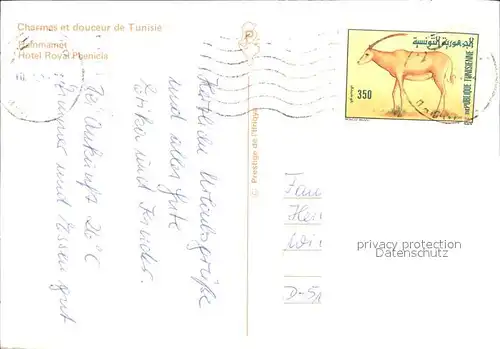 Charmes et douceur de Tunisie
Hammamet
Hotel Royal Phenicia
Herzliche Urlaubsgrüße
und alles Gute
und
Bei Ankunft 26°C
Zimmer und Essen gut
© Prestige de l'Image
الجمهورية التونسية
350
REPUBLIQUE TUNISIENNE
Fam
Her
D-5
privacy protection
Datenschutz